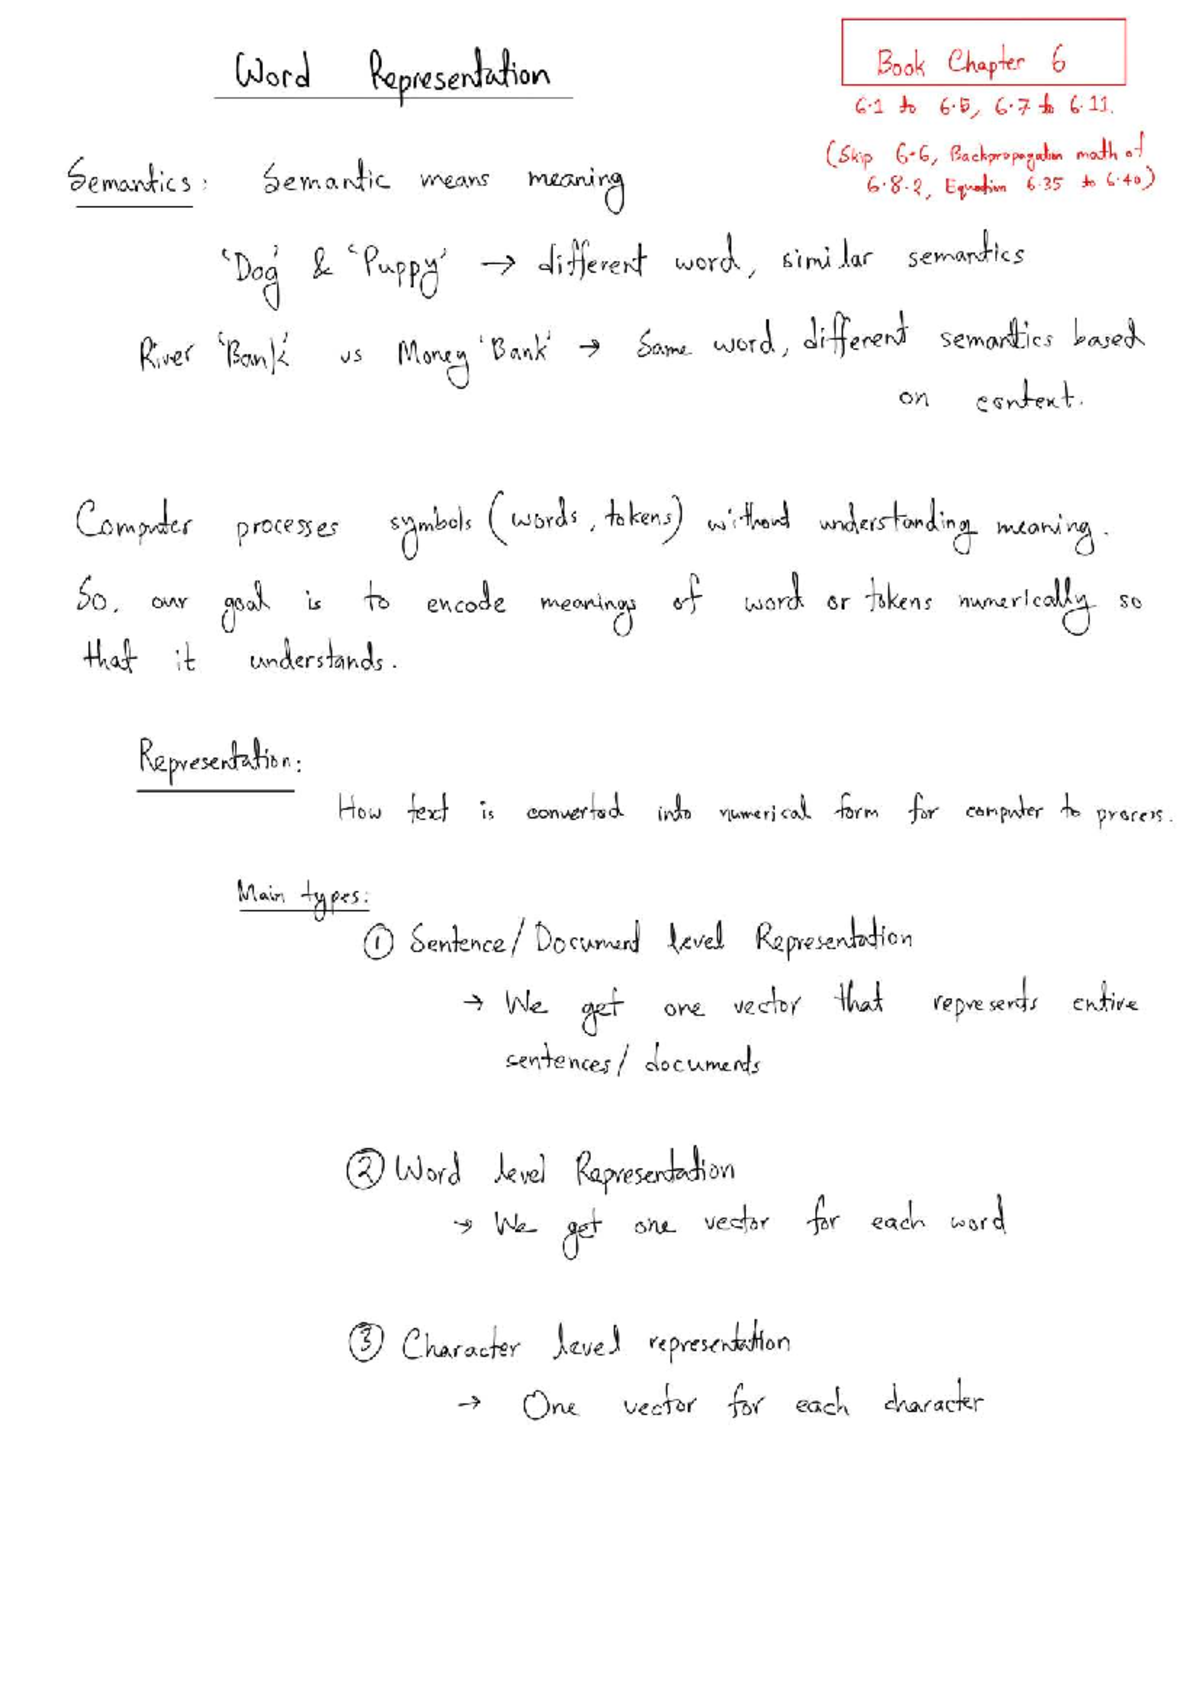 Word Representation
Book Chapter 6
6.1 to 6.5, 6.7 to 6.11.
(Skip 6.6, Backpropagation math of
6.8.2, Equation 6.35 to 6.40)
Semantics: Semantic means meaning
'Dog' & 'Puppy' → different word, similar semantics
River 'Bank' vs Money 'Bank' → Same word, different semantics based
on context.
Computer processes symbols (words, tokens) without understanding meaning.
So, our goal is to encode meanings of word or tokens numerically so
that it understands.
Representation:
How text is converted into numerical form for computer to process.
Main types:
① Sentence/Document level Representation
→ We get one vector that represents entire
sentences/documents
② Word level Representation
→ We get one vector for each word
③ Character level representation
→ One vector for each character